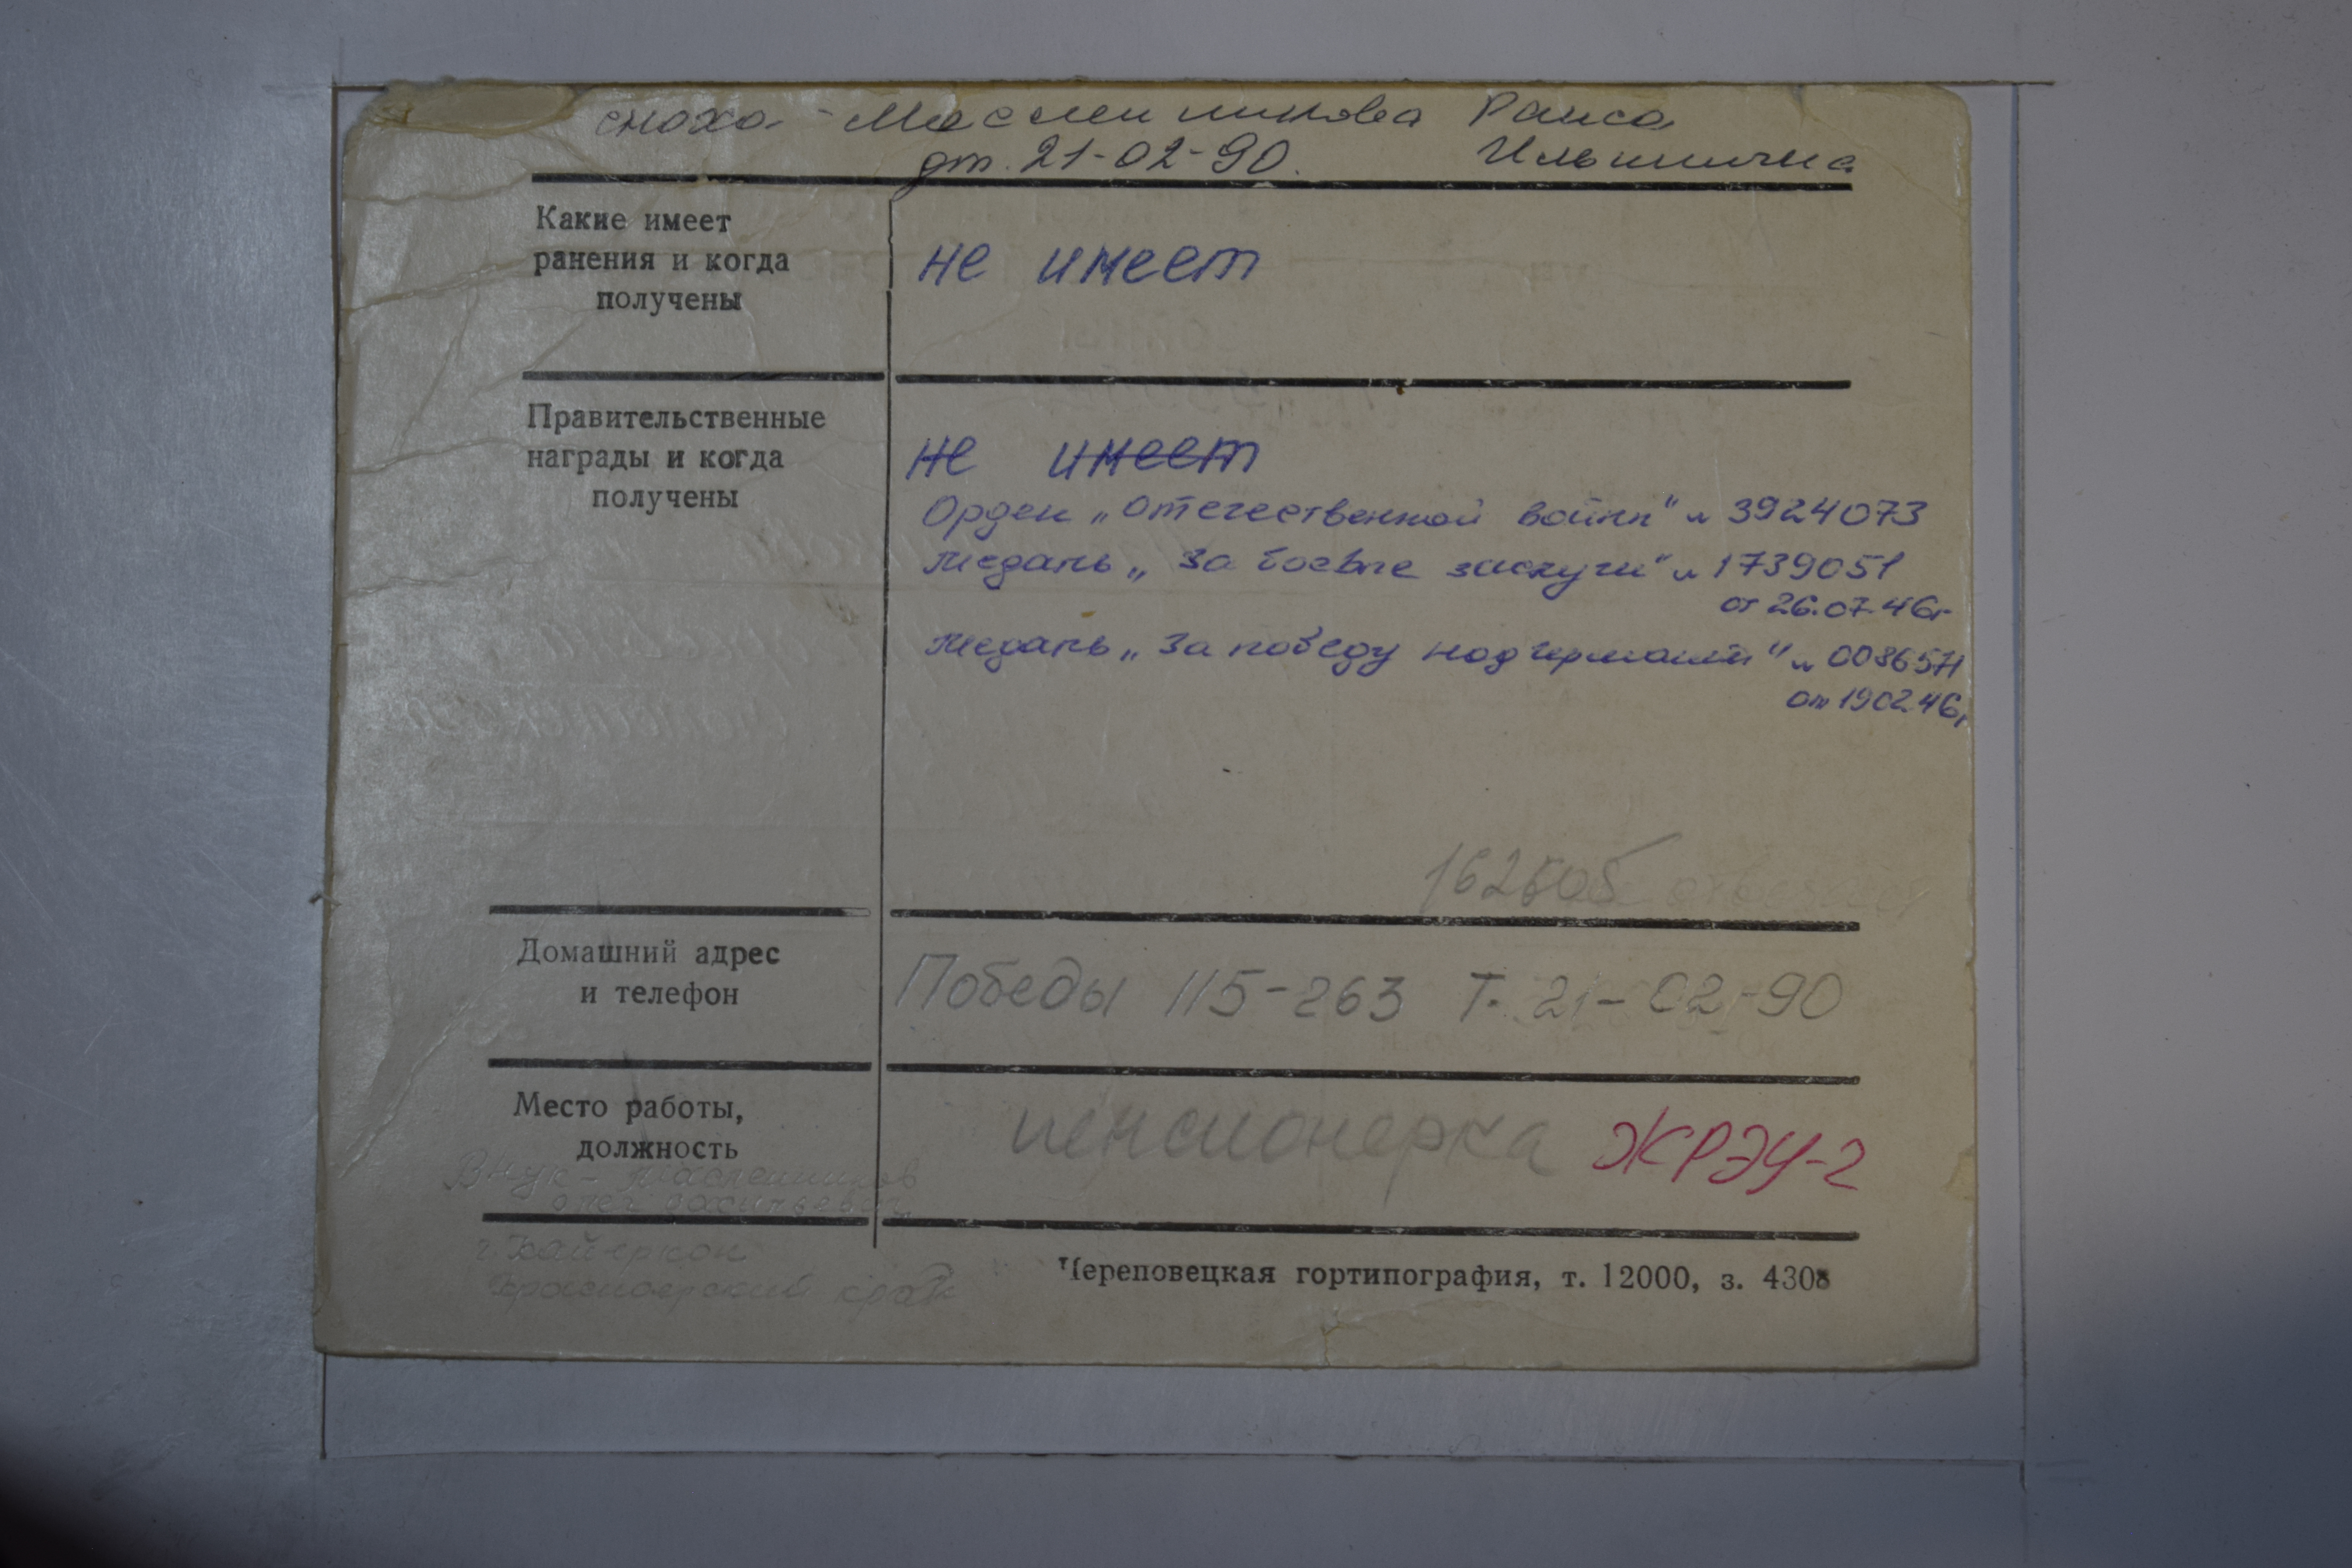 сноха - Масленникова Раиса
дт. 21-02-90. Ильинична
Какие имеет
ранения и когда
получены
не имеет
Правительственные
награды и когда
получены
не имеет
Орден „Отечественной войны" н 3924073
Медаль „За боевые заслуги" н 1739051
от 26.07.46г
Медаль „За победу над Германией" н 0086571
от 190246г
Домашний адрес
и телефон
Победы 115-263 т. 21-02-90
Место работы,
должность
пенсионерка ЖРЭУ-2
Внук - Масленников
Олег Васильевич
г. Кайеркан
Красноярский край
Череповецкая гортипография, т. 12000, з. 4308